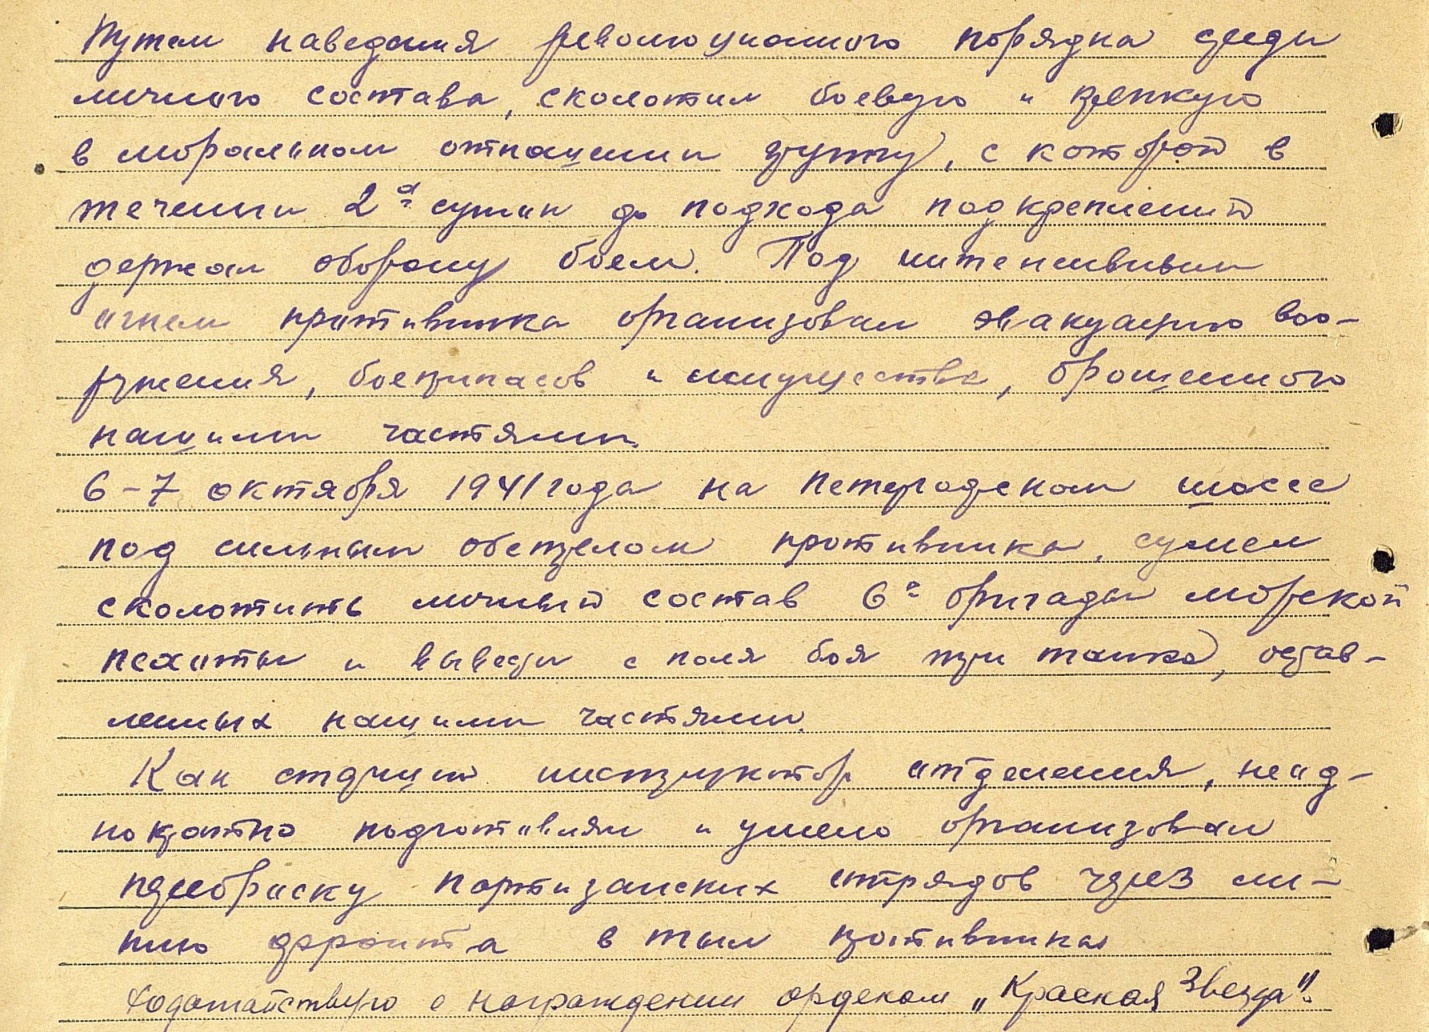 Путем наведения революционного порядка среди
личного состава, сколотил боевую и крепкую
в моральном отношении группу, с которой в
течении 2х суток до подхода подкреплений
держал оборону боем. Под интенсивным
огнем противника организовал эвакуацию воо-
ружения, боеприпасов и имущества, брошенного
нашими частями.
6-7 октября 1941 года на Петергофском шоссе
под сильным обстрелом противника, сумел
сколотить личный состав 6й бригады морской
пехоты и вывести с поля боя три танка, остав-
ленных нашими частями.
Как старший инструктор отделения, неод-
нократно подготовлял и умело организовал
переброску партизанских отрядов через ли-
нию фронта в тыл противника
Ходатайствую о награждении орденом „Красная Звезда".